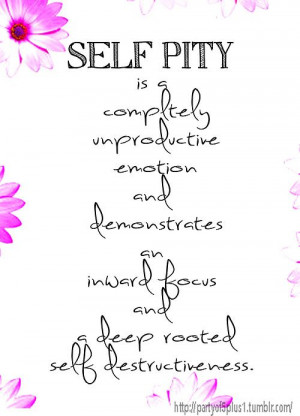 SELF PITY
is a
completely
unproductive
emotion
and
demonstrates
an
inward focus
and
a deep rooted
self destructiveness.
http://partyof5plus1.tumblr.com/